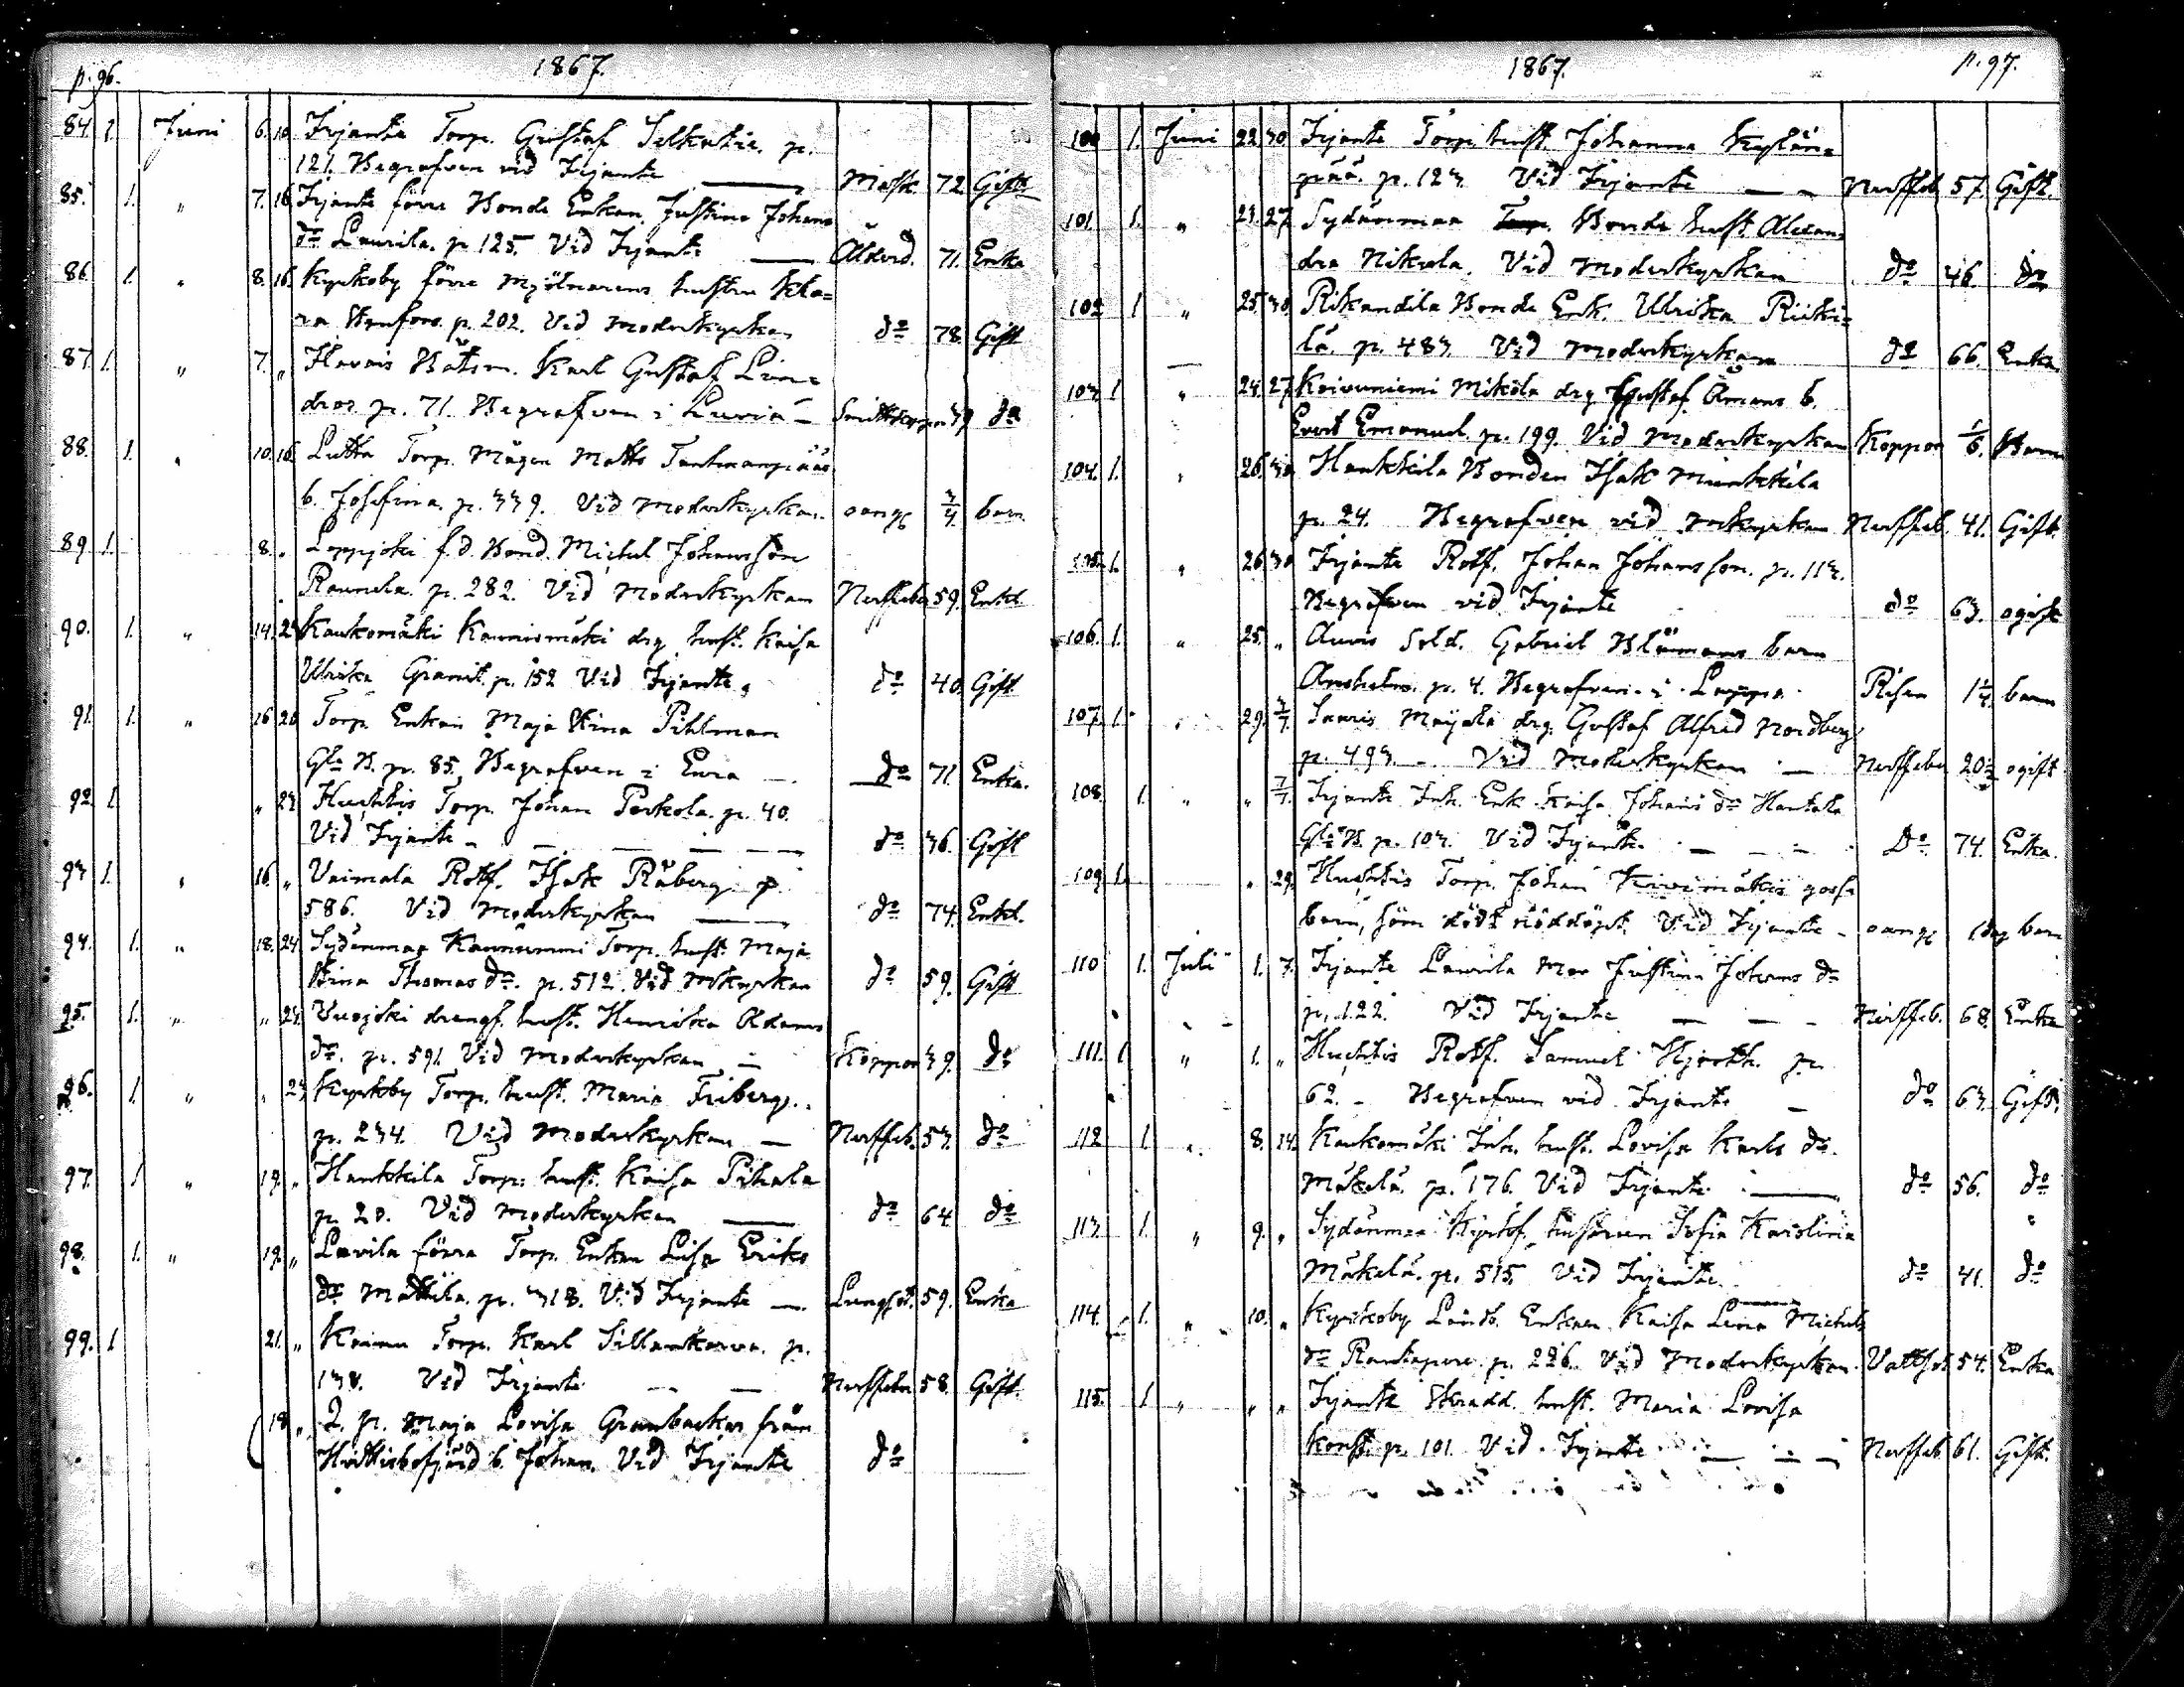 p. 96.
1867.
84. 1. Juni 6. 10. Irjante Torp. Gustaf p.
121. Begrafven vid Irjante — Mask. 72. Gift
85. 1. " 7. 16. Irjante förre Bonde Enkan Justina Johans
dr Laurila. p. 125. Vid Irjante — Ålderd. 71. Enka
86. 1. " 8. 16. Kyrkoby förre Mjölnarens hustru Kla=
ra p. 202. Vid Moderkyrkan do 78. Gift
87. 1. " 7. " Båtsm. Karl Gustaf Lin=
dros p. 71. Begrafven i Luvia — 39 do
88. 1. " 10. 16. Lutta Torp. Mågen Matts
b. Josefina. p. 339. Vid Moderkyrkan. oang 3/4 barn
89. 1. 8. " f.d. Bond. Michel Johansson
Raunela. p. 282. Vid Moderkyrkan Nerffeber 59. Enkl.
90. 1. " 14. 23 Kaukomäki drg. hust. Kaisa
Ulrika Granit. p. 152 Vid Irjante. do 40. Gift
91. 1. " 16 20 Torp. Enkan Maja Stina Pihlman
Gla B. p. 85. Begrafven i Eura — do 71. Enka.
92. 1. " 23. Huchtis Torp. Johan Perkola. p. 40.
Vid Irjante — — — — — do 36. Gift
93. 1. " 16. " Vaimala Rotf. Isak Råberg p.
586. Vid Moderkyrkan — do 74. Enkl.
94. 1. " 18. 24 Sydänmaa Torp. hust. Maja
Stina Thomas dr. p. 512. Vid Mkyrkan do 59. Gift
95. 1. " " 23. Vuojoki drengs. hust. Henrika Adams
dr. p. 591. Vid Moderkyrkan — Koppor 39. do
96. 1. " " 23. Kyrkoby Torp. hust. Maria Friberg.
p. 234. Vid Moderkyrkan — Nerffeb. 53. do
97. 1 " 19. " Hankkila Torp. hust. Kaisa Pihala
p. 20. Vid Moderkyrkan — do 64. do
98. 1. " 19. " Lavila förra Torp. Enkan Lisa Eriks
dr Mattila. p. 318. Vid Irjante — Lungsot. 59. Enka
99. 1 21. " Torp. Karl p.
138. Vid Irjante — — Nerffeber 58. Gift.
18. " I. p. Maja Lovisa Granbackas från
b. Johan. Vid Irjante do
1867.
p. 97.
100 1. Juni 22. 30. Irjante Torp. hust. Johanna Kylän=
pää. p. 123. Vid Irjante — — Nerffeb. 57. Gift.
101. 1. " 23. 27. Sydänmaa Bonde hust. Alexan=
dra Nikula. Vid Moderkyrkan do 46. do
102 1 " 25. 30. Rikandila Bonde Enk. Ulrika Riiki=
lä. p. 483. Vid Moderkyrkan do 66. Enka
103. 1 " 24. 27. Koivuniemi Mikola drg. Gustaf Ömans b.
Evert Emanuel. p. 199. Vid Moderkyrkan Koppor 1/6. Barn
104. 1. " 26. 30. Hankkila Bonden Isak Minkkila
p. 24. Begrafven vid Mkyrkan Nerffeb. 41. Gift.
105. 1. " 26. 30 Irjante Rotf. Johan Johansson. p. 113.
Begrafven vid Irjante do 63. ogift
106. 1. " 25. " Auvis Sold. Gabriel Blåmans barn
Anshelm. p. 4. Begrafven i Lappi. 1¼. barn
107. 1. " 29. 3/7. Saaris Maijala drg. Gustaf Alfred Nordberg
p. 493. — Vid Moderkyrkan — Nerffeber 20½ ogift
108. 1. " " 7/7. Irjante Inh. Enk. Kaisa Johans dr Hantala
Gla B. p. 103. Vid Irjante. — — — Do. 74. Enka.
109. 1. " 29. Huchtis Torp. Johan Kivimäkis gosse
barn, som dödt nöddöpt. Vid Irjante — oang 1 dag barn
110 1. Juli 1. 7. Irjante Laurila Mor Justina Johans dr
p. 122. Vid Irjante — — — Nerffeb. 68. Enka
111. 1 " 1. " Huchtis Rotf. Samuel Hjorth. p.
62. — Begrafven vid Irjante — do 63. Gift.
112 1. " 8. 14. Kaukomäki Inh. hust. Lovisa Karls dr.
Mäkelä. p. 176. Vid Irjante — do 56. do
113. 1. " 9. " Sydänmaa hustrun Sofia Karolina
Mäkelä. p. 515. Vid Irjante do 41. do
114. 1. " 10. " Kyrkoby Enkan Kaisa Lena Michels
dr Rantapere. p. 226. Vid Moderkyrkan. Vattsot 54. Enka
115. 1 " " " Irjante Skradd. hust. Maria Lovisa
Konst. p. 101. Vid Irjante — — — Nerffeb. 61. Gift.